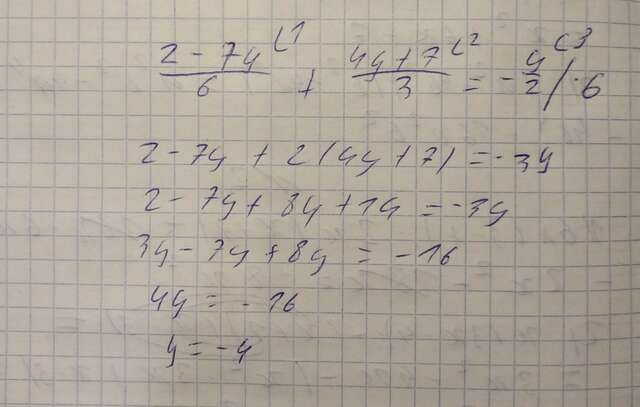 (2 - 7y)/6 ⁽¹ + (4y + 7)/3 ⁽² = - y/2 ⁽³ / · 6
2 - 7y + 2(4y + 7) = - 3y
2 - 7y + 8y + 14 = - 3y
3y - 7y + 8y = - 16
4y = - 16
y = - 4